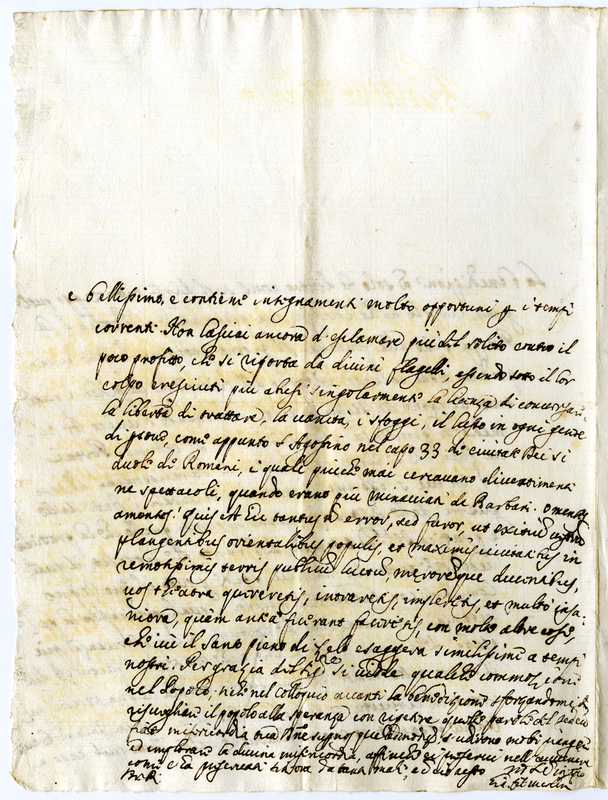 e bellissimo, e contiene insegnamenti molto opportuni p i tempi
correnti. Non lasciai ancora d'esclamare più del solito contro il
poco profitto, che si riporta da divini flagelli, essendo sotto il lor
colpo cresciuti più abusi singolarmente la licenza di conversare,
la libertà di trattare, la vanità, i sfoggi, il lusso in ogni genere
di persone, come appunto S Agostino nel capo 33 de civitate Dei si
duole de Romani, i quali più che mai cercavano divertimenti
ne spettacoli, quando erano più minacciati da Barbari. O mentes
amentes! quis est hic tantus error, sed furor, ut exitium vestrum
plangentibus orientalibus populis, et maximis civitatibus in
remotissimis terris publicum luctum, meroremque ducentibus,
vos theatra quereretis, intraretis, impleretis, et multo insa-
niora, quam antea fuerant faceretis, con molte altre cose,
che ivi il Santo pieno di zelo esaggera similissime a tempi
nostri. Per grazia del Sig.re si vidde qualche commozione
nel Popolo, e nel Colloquio avanti la benedizione sforzandomi di
risvegliare il popolo alla speranza con ripetere quelle parole del
misericordia si udirono molti piangere
ed implorare la divina misericordia,